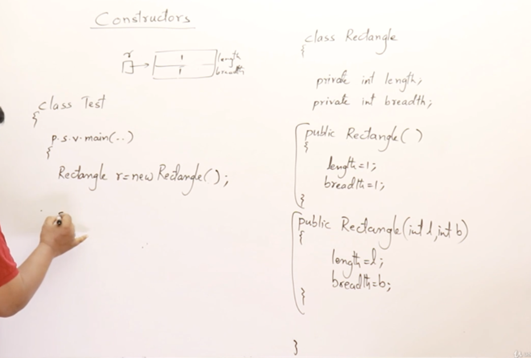 Constructors
r
1
1
length
breadth
class Test
{
p.s.v.main(..)
{
Rectangle r=new Rectangle();
class Rectangle
{
private int length;
private int breadth;
public Rectangle()
{
length=1;
breadth=1;
}
public Rectangle(int l,int b)
{
length=l;
breadth=b;
}
}